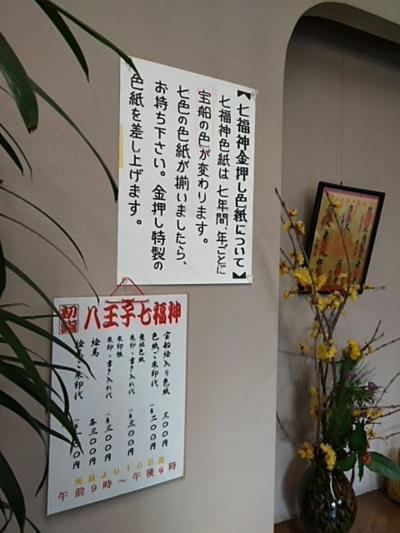 【七福神金押し色紙について】
七福神色紙は七年間、年ごとに
宝船の色が変わります。
七色の色紙が揃いましたら、
お持ち下さい。金押し特製の
色紙を差し上げます。
初詣
八王子七福神
宝船絵入り色紙 三〇〇円
色紙ご朱印代 二〇〇円
朱印・書き入れ代 三〇〇円
朱印帳
朱印・書き入れ代 三〇〇円
絵馬 各三〇〇円
絵馬ご朱印代 一〇〇円
元旦より10日迄
午前9時〜午後4時